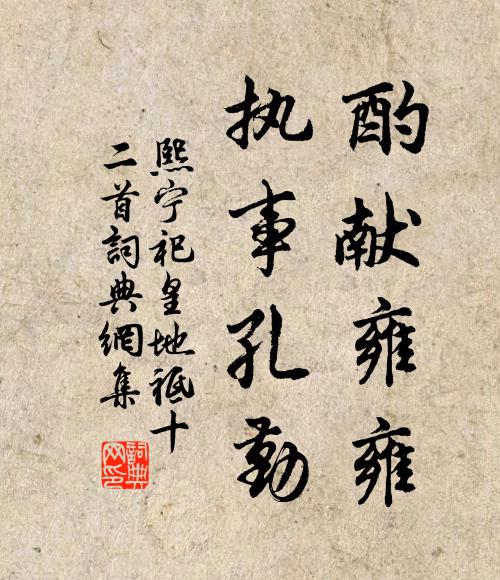 酌献雍雍
执事孔勤
熙宁祀皇地祇十
二首詞典網集
詞典
网印